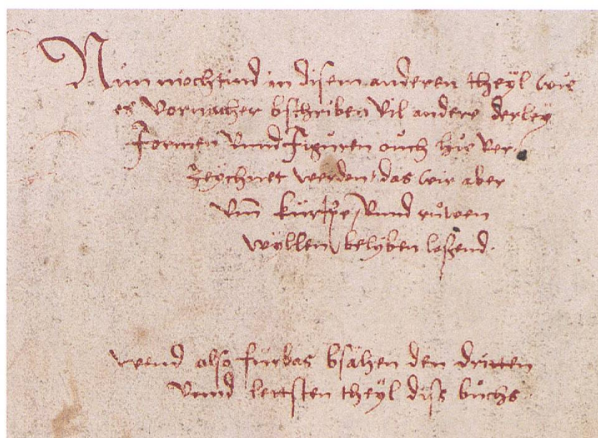 Nun mochtind in disem anderen theyl wie
es vornacher bschriben vil andere derley
formen vnnd figuren ouch hie ver-
zeychnet werden / das wir aber
vm̄ kürtze / vnnd růwen
wyllen belyben laßend.
wend also fürbas bsähen den dritten
vnnd lettsten theÿl diß bůchs